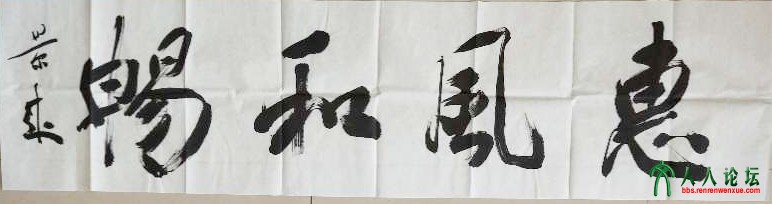 惠風和暢
人人论坛
bbs.renrenwenxue.com